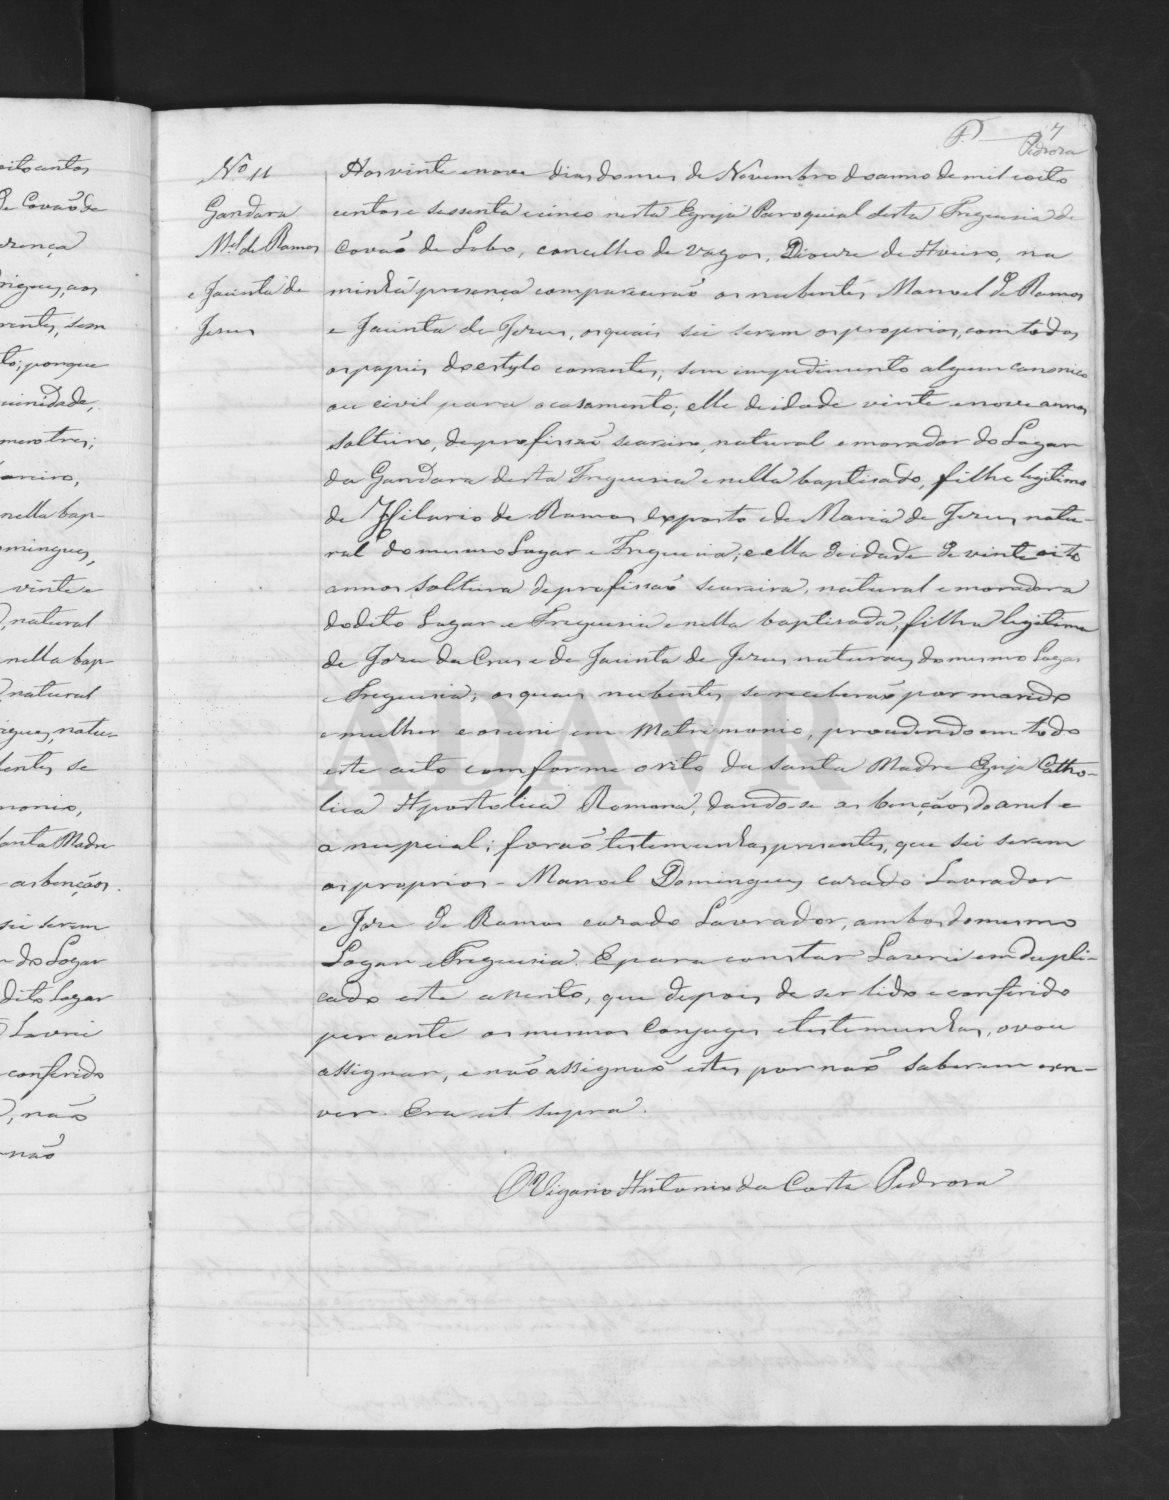 F. 7
Pedrosa
Nº 11
Gandara
M.el de Ramos
e Jacinta de
Jesus
Aos vinte e nove dias do mes de Novembro do anno de mil e oito
centos e sessenta e cinco nesta Egreja Paroquial desta Freguesia de
Covaõ de Lobo, concelho de Vagos, Diocese de Aveiro, na
minha presença compareceraõ os nubentes Manoel de Ramos
e Jacinta de Jesus, os quais sei serem os proprios, com todos
os papeis do estylo correntes, sem impedimento algum canonico
ou civil para o casamento; elle de idade vinte e nove annos
solteiro, de profissaõ seareiro, natural e morador do Lugar
da Gandara desta Freguesia e nella baptisado, filho legitimo
de Hilario de Ramos exposto e de Maria de Jesus, natu-
ral do mesmo Lugar e Freguesia; e ella de idade de vinte oito
annos solteira de profissaõ seareira, natural e moradora
do dito Lugar e Freguesia e nella baptisada, filha legitima
de Jose da Crus e de Jacinta de Jesus, naturaes do mesmo Lugar
e Freguesia; os quaes nubentes se receberaõ por marido
e mulher e os uni em Matrimonio, procedendo em todo
este acto comforme o rito da Santa Madre Egreja Catho-
lica Apostolica Romana, dando-se as bençaõs do anel e
a nupcial; foraõ testemunhas presentes, que sei serem
os proprios - Manoel Domingues casado Lavrador
e Jose de Ramos casado Lavrador, ambos do mesmo
Lugar e Freguesia. E para constar Lavrei em dupli-
cado este assento, que depois de ser lido e conferido
perante os mesmos Conjuges e testemunhas, o vou
assignar, e naõ assignaõ estes por naõ saberem escre-
ver. Era ut supra.
O Vigario Antonio da Costa Pedrosa
oito centos
de Covaõ de
presença
rigues, aos
rentes, sem
to; porque
meiro tres;
nella bap-
omingues,
vinte e
, natural
nella bap-
natural
rigues, natu-
entes se
monio,
anta Madre
as bençaõs
sei serem
r do Logar
dito Logar
Lavrei
conferido
, naõ
naõ
ADAVR